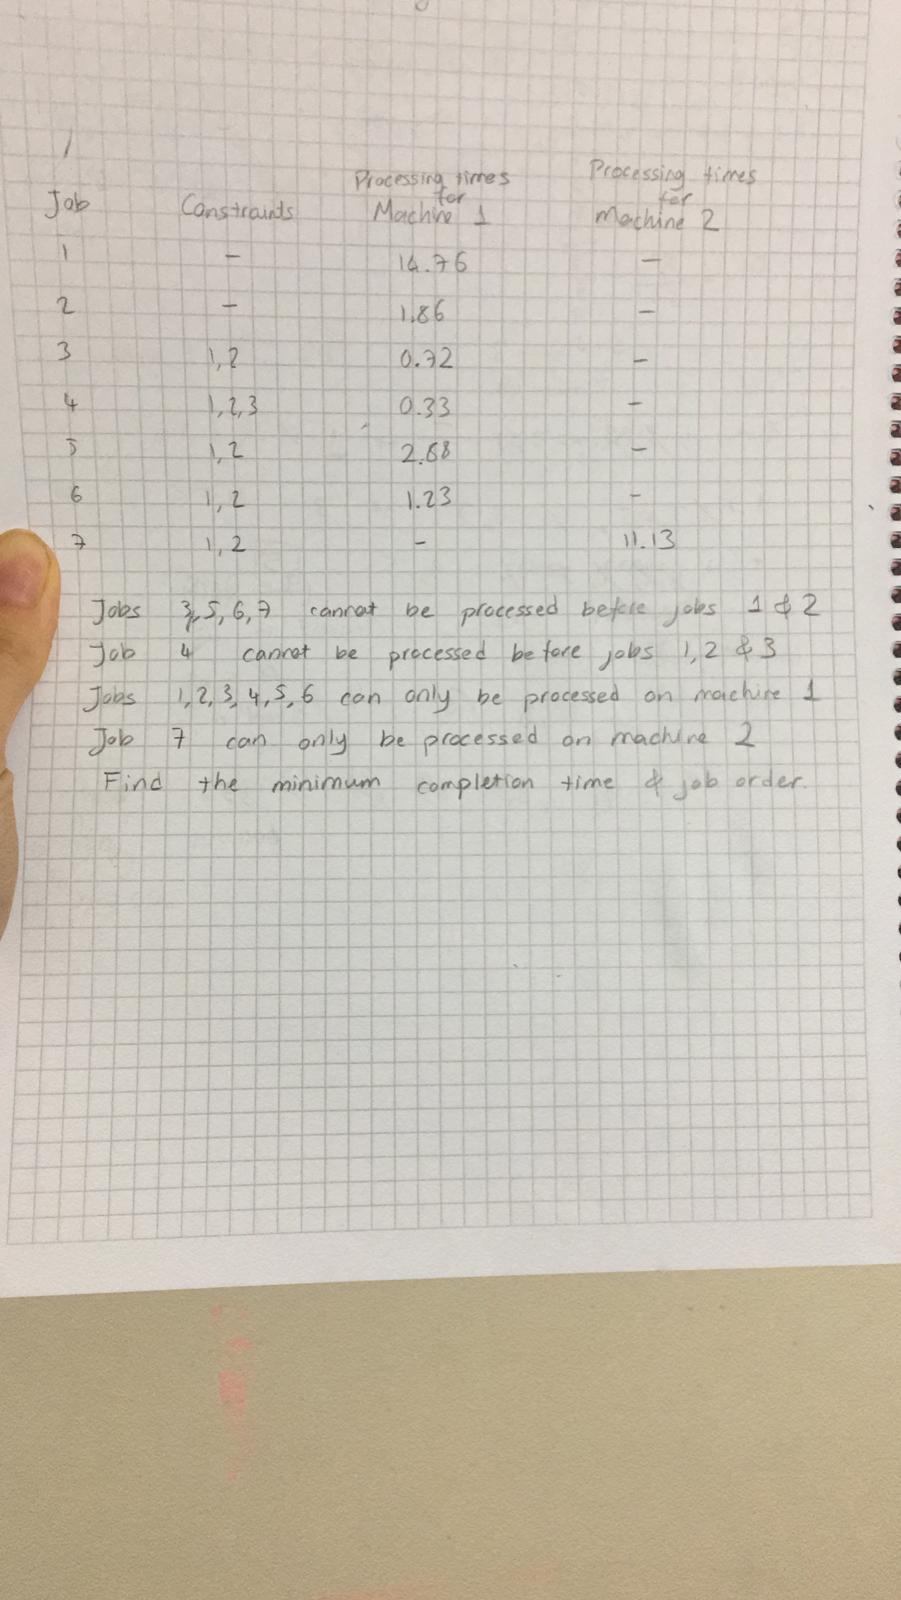 Job Constraints Processing times for Machine 1 Processing times for machine 2
1 - 14.76 -
2 - 1.86 -
3 1,2 0.72 -
4 1,2,3 0.33 -
5 1,2 2.68 -
6 1,2 1.23 -
7 1,2 - 11.13
Jobs 3,5,6,7 cannot be processed before jobs 1 & 2
Job 4 cannot be processed before jobs 1,2 & 3
Jobs 1,2,3,4,5,6 can only be processed on machine 1
Job 7 can only be processed on machine 2
Find the minimum completion time & job order.